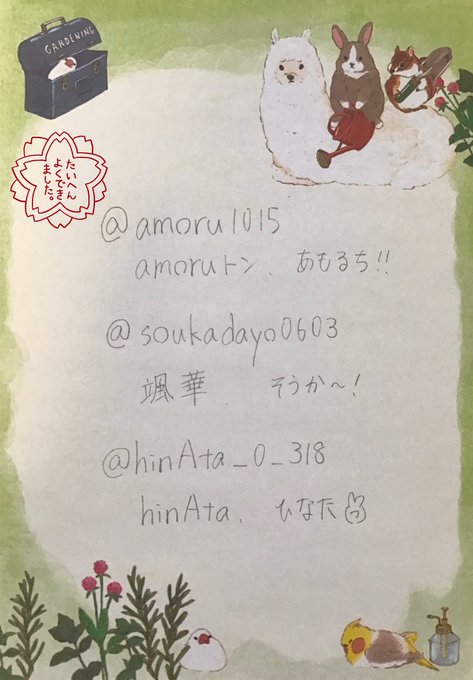 GARDENING
たいへん
よくでき
ました。
@amoru1015
amoruトン、あもるち!!
@soukadayo0603
颯華 そうか〜!
@hinAta_0_318
hinAta、ひなた